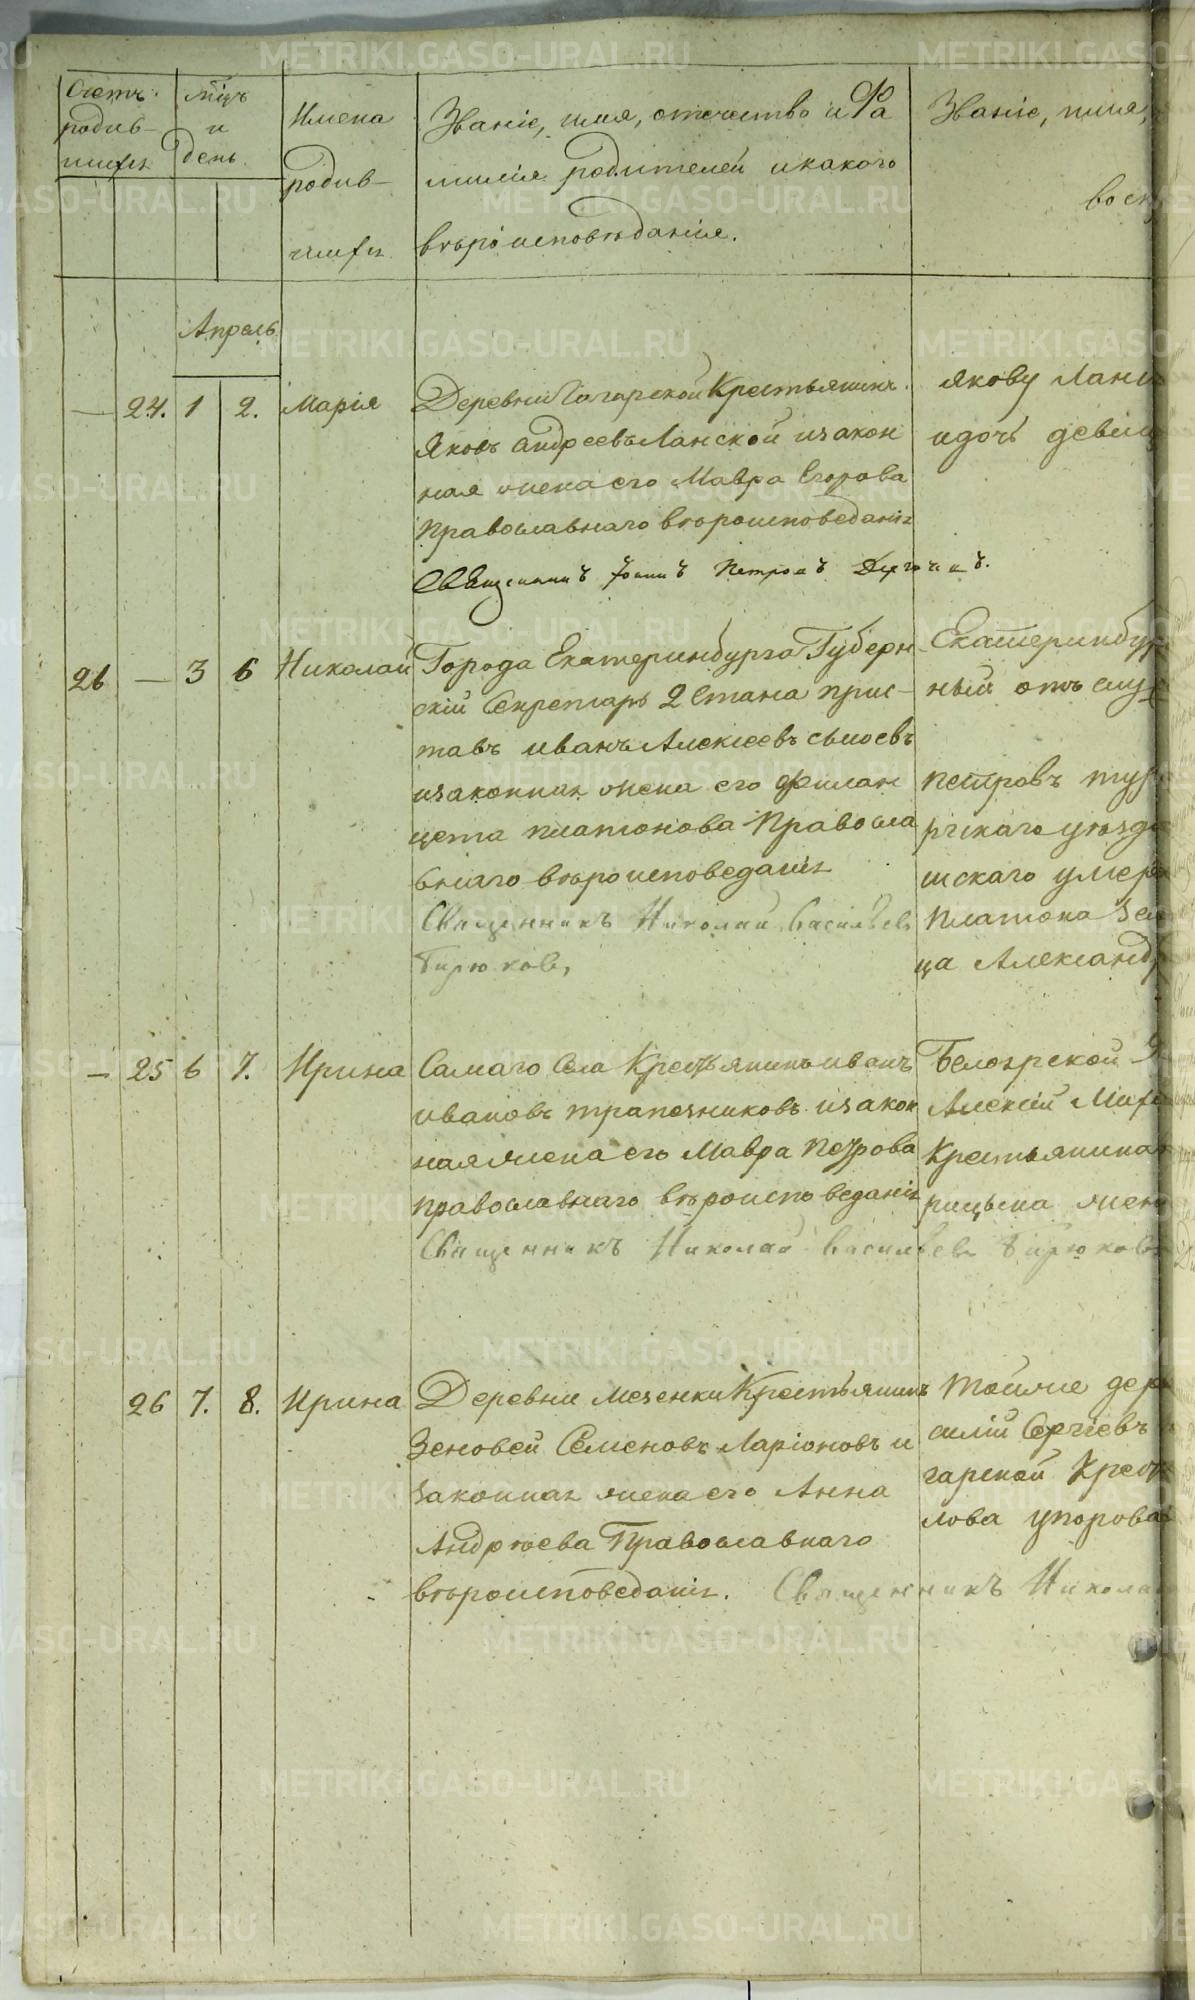 Счетъ родив-шихся
Мѣцъ и день.
Имена родив-шихся
Званіе, имя, отечество и Фа
милія родителей и какого
вѣроисповѣданія.
Званіе, имя,
Апрель
— 24. 1 2. Марія
Деревни Гагарской Крестьянинъ
Яковъ Андреевъ Ланской и закон
ная жена его Мавра Егорова
Православнаго вѣроисповеданія
Священникъ Іоаннъ Петровъ
Якову
и дочь девиц
26 — 3 6 Николай
Города Екатеринбурга Губерн
скій Секретарь 2 Стана прис-
тавъ Иванъ Алексѣевъ
и законная жена его Филан
цета Платонова Правосла
внаго вѣроисповеданія
Священникъ Николай Васильев
Бирюков,
Екатеринбур
ный отъ
Петровъ
ргскаго уѣзда
шскаго умер
Платона
ца Александр
— 25 6 7. Ирина
Самаго Села Крестьянинъ Иванъ
Ивановъ Трапезниковъ и закон
ная жена его Мавра Петрова
православнаго вѣроисповеданія
Священникъ Николай Васильев Бирюков
Белоярской
Алексій
Крестьянина
жена
26 7. 8. Ирина
Деревни Мезенки Крестьянинъ
Зеновей Семеновъ Ларіоновъ и
законная жена его Анна
Андрѣева Православнаго
вѣроисповеданія. Священникъ Николай
Той же дер
силій Сергіевъ
гарской Крест
лова
METRIKI.GASO-URAL.RU